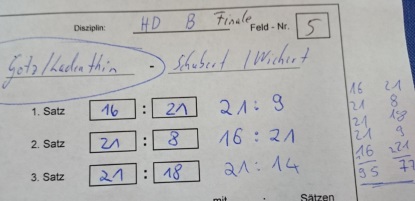 Disziplin: HD B Finale Feld - Nr. 5
Götz/Ladenthin - Schubert / Wichert
1. Satz 16 : 21 21 : 9
2. Satz 21 : 8 16 : 21
3. Satz 21 : 18 21 : 14
16 21
21 8
21 18
21 9
16 21
95 77
mit : Sätzen